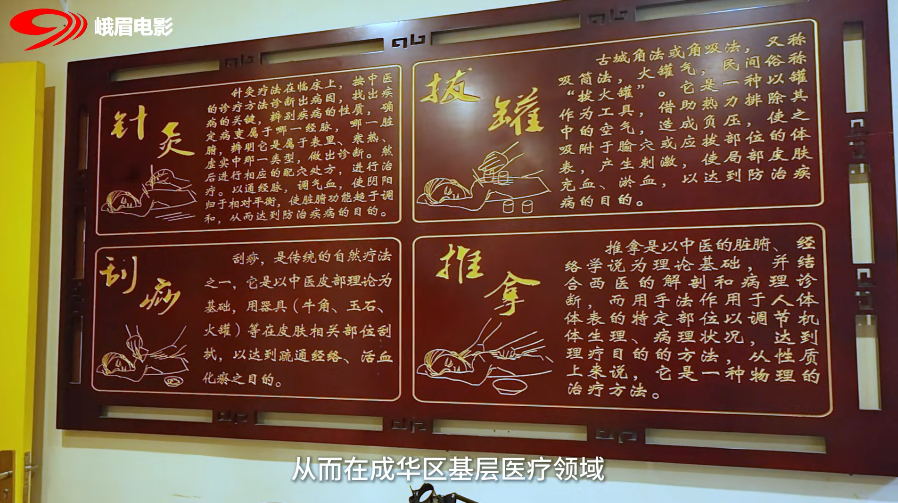 峨眉电影
针灸
针灸疗法在临床上，按中医
的诊疗方法诊断出病因，找出疾
病的关键，辨别疾病的性质，确
定病变属于哪一经脉，哪一脏
腑，辨明它是属于表里、寒热、
虚实中那一类型，做出诊断。然
后进行相应的配穴处方，进行治
疗。以通经脉，调气血，使阴阳
归于相对平衡，使脏腑功能趋于调
和，从而达到防治疾病的目的。
拔罐
古城角法或角吸法，又称
吸筒法，火罐气，民间俗称
“拔火罐”。它是一种以罐
作为工具，借助热力排除其
中的空气，造成负压，使之
吸附于腧穴或应拔部位的体
表，产生刺激，使局部皮肤
充血、淤血，以达到防治疾
病的目的。
刮痧
刮痧，是传统的自然疗法
之一，它是以中医皮部理论为
基础，用器具（牛角、玉石、
火罐）等在皮肤相关部位刮
拭，以达到疏通经络、活血
化瘀之目的。
推拿
推拿是以中医的脏腑、经
络学说为理论基础，并结
合西医的解剖和病理诊
断，而用手法作用于人体
体表的特定部位以调节机
体生理、病理状况，达到
理疗目的的方法，从性质
上来说，它是一种物理的
治疗方法。
从而在成华区基层医疗领域